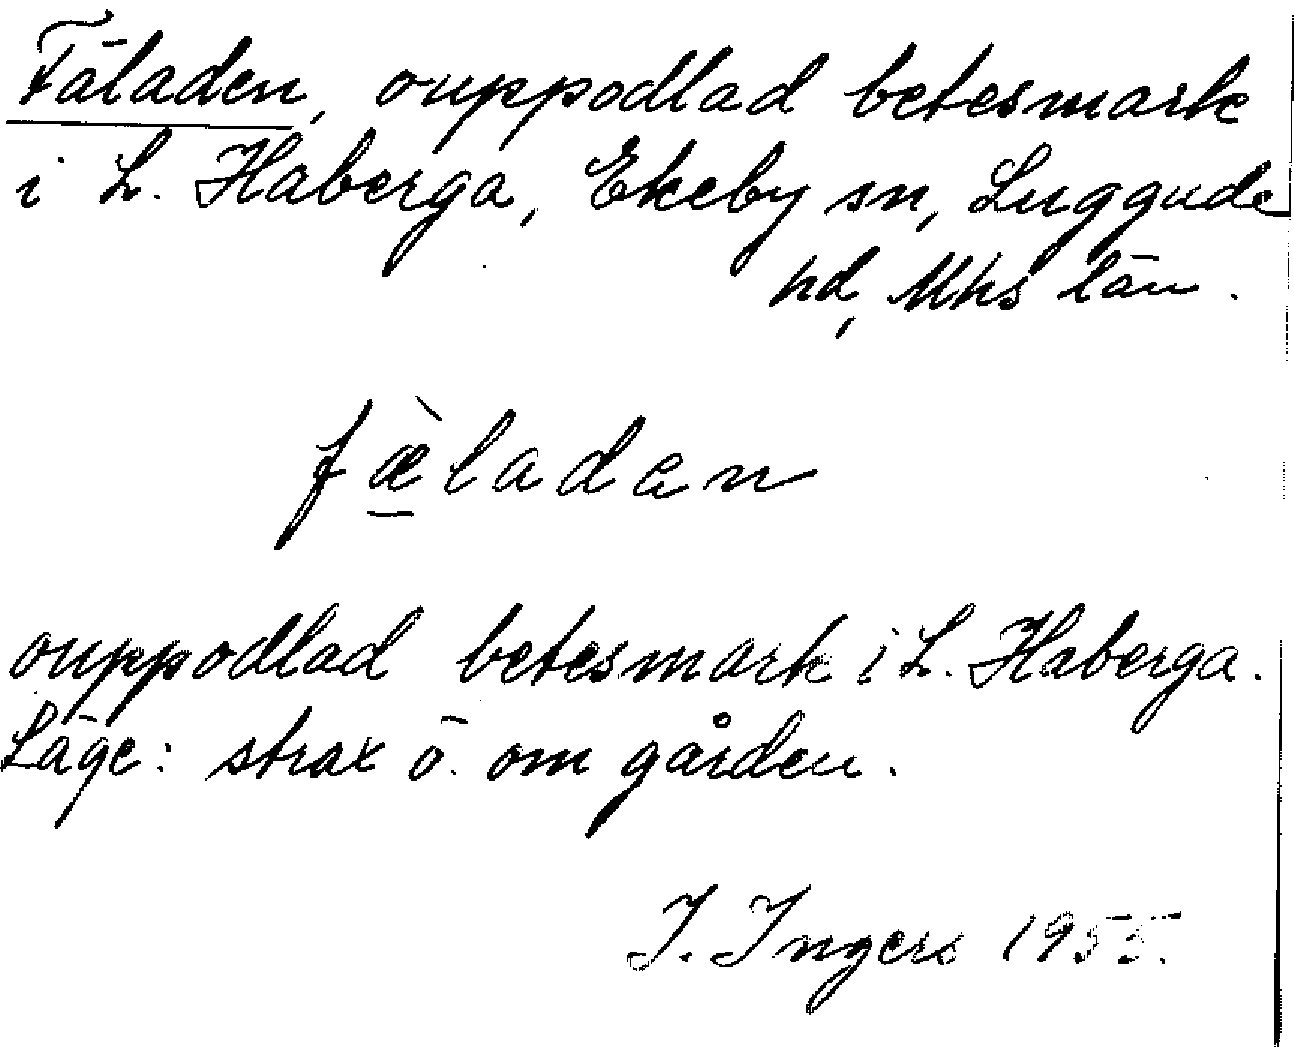 Fäladen, ouppodlad betesmark
i L. Haberga, Ekeby sn, Luggude
hd, Mhs län.
fæ̀ladan
ouppodlad betesmark i L. Haberga.
Läge: strax ö. om gården.
I. Ingers 1955.